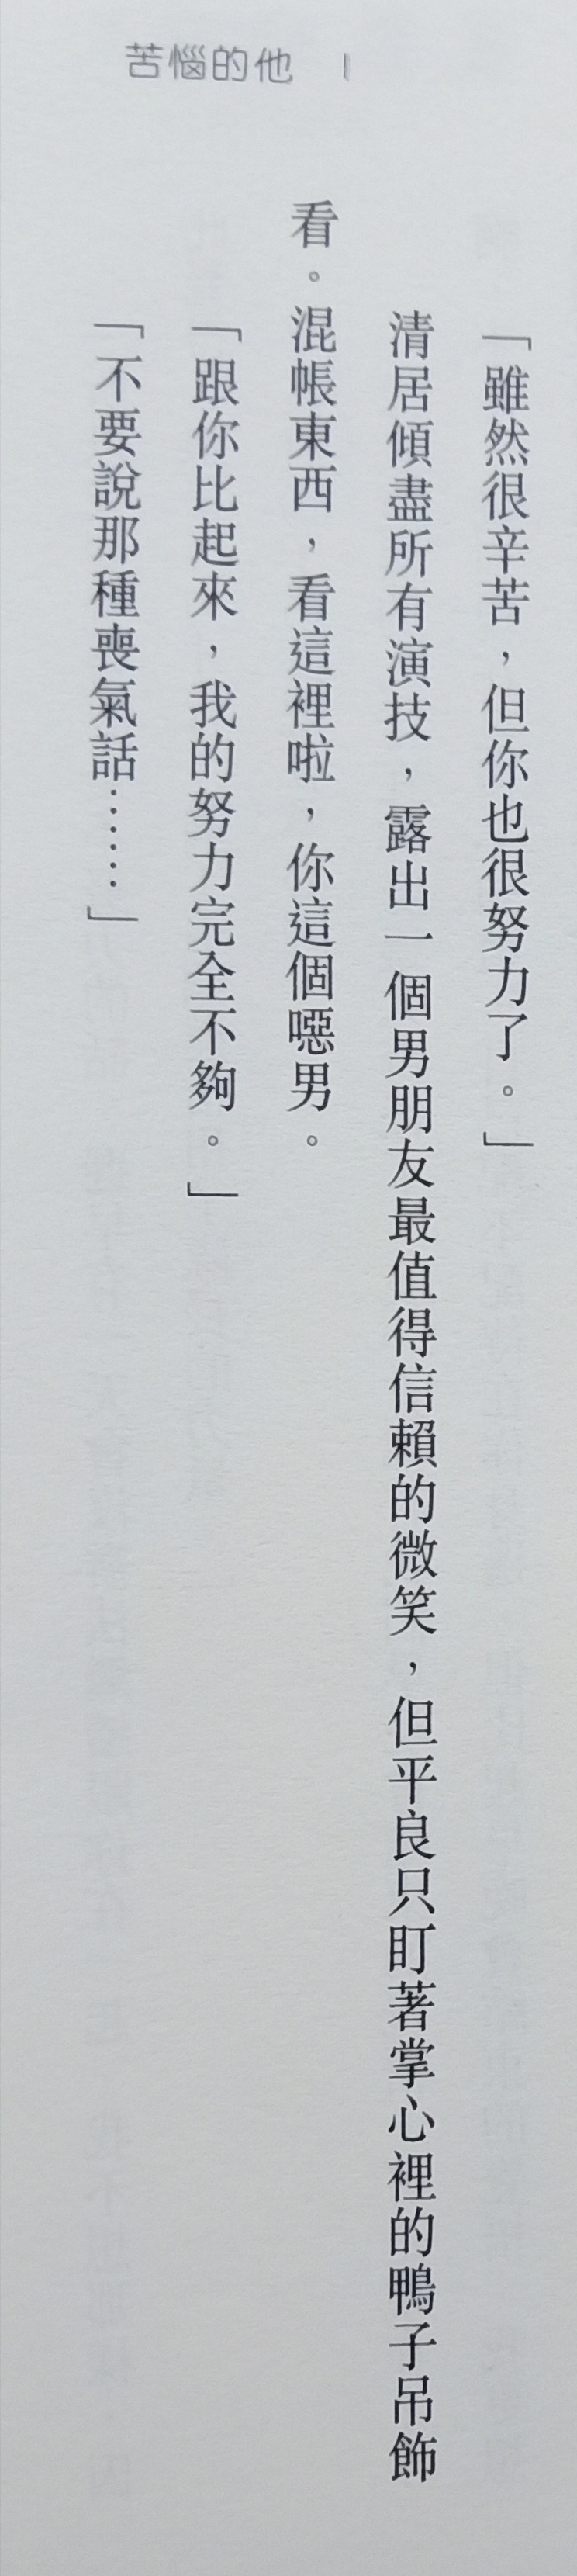 苦惱的他 I
「雖然很辛苦，但你也很努力了。」
清居傾盡所有演技，露出一個男朋友最值得信賴的微笑，但平良只盯著掌心裡的鴨子吊飾
看。混帳東西，看這裡啦，你這個噁男。
「跟你比起來，我的努力完全不夠。」
「不要說那種喪氣話……」